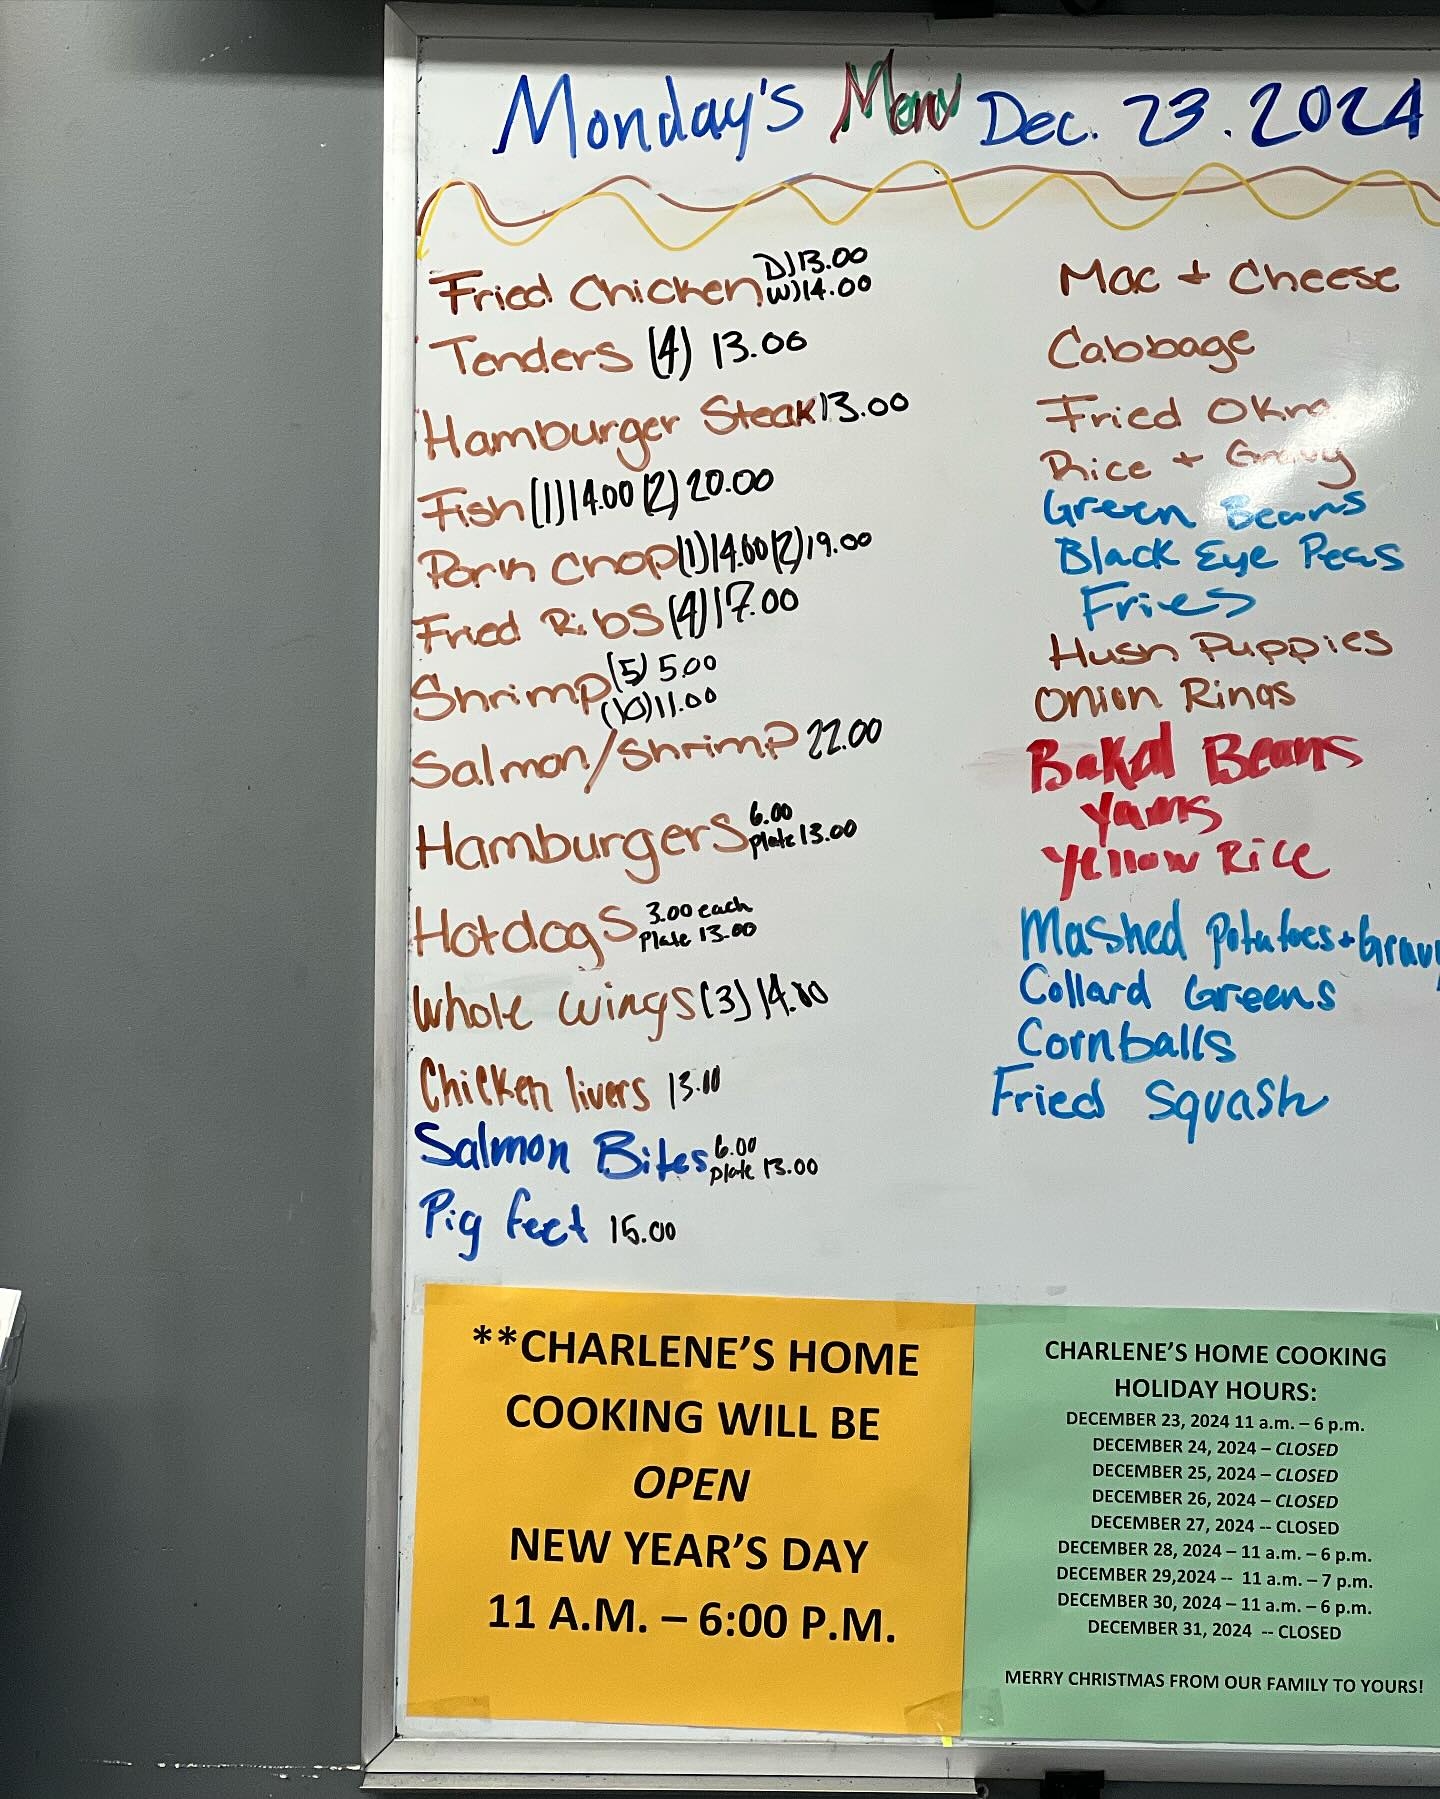 Monday's Menu Dec. 23. 2024
Fried Chicken D) 13.00
W) 14.00
Tenders (4) 13.00
Hamburger Steak 13.00
Fish (1) 14.00 (2) 20.00
Pork Chop (1) 14.00 (2) 19.00
Fried Ribs (4) 17.00
Shrimp (5) 5.00
(10) 11.00
Salmon/Shrimp 22.00
Hamburgers 6.00
Plate 13.00
Hotdogs 3.00 each
Plate 13.00
Whole Wings (3) 14.00
Chicken livers 13.00
Salmon Bites 6.00
Plate 13.00
Pig feet 15.00
Mac + Cheese
Cabbage
Fried Okra
Rice + Gravy
Green Beans
Black Eye Peas
Fries
Hush Puppies
Onion Rings
Baked Beans
Yams
Yellow Rice
Mashed Potatoes + Gravy
Collard Greens
Cornballs
Fried Squash
**CHARLENE'S HOME
COOKING WILL BE
OPEN
NEW YEAR'S DAY
11 A.M. – 6:00 P.M.
CHARLENE'S HOME COOKING
HOLIDAY HOURS:
DECEMBER 23, 2024 11 a.m. – 6 p.m.
DECEMBER 24, 2024 – CLOSED
DECEMBER 25, 2024 – CLOSED
DECEMBER 26, 2024 – CLOSED
DECEMBER 27, 2024 -- CLOSED
DECEMBER 28, 2024 – 11 a.m. – 6 p.m.
DECEMBER 29,2024 -- 11 a.m. – 7 p.m.
DECEMBER 30, 2024 – 11 a.m. – 6 p.m.
DECEMBER 31, 2024 -- CLOSED
MERRY CHRISTMAS FROM OUR FAMILY TO YOURS!